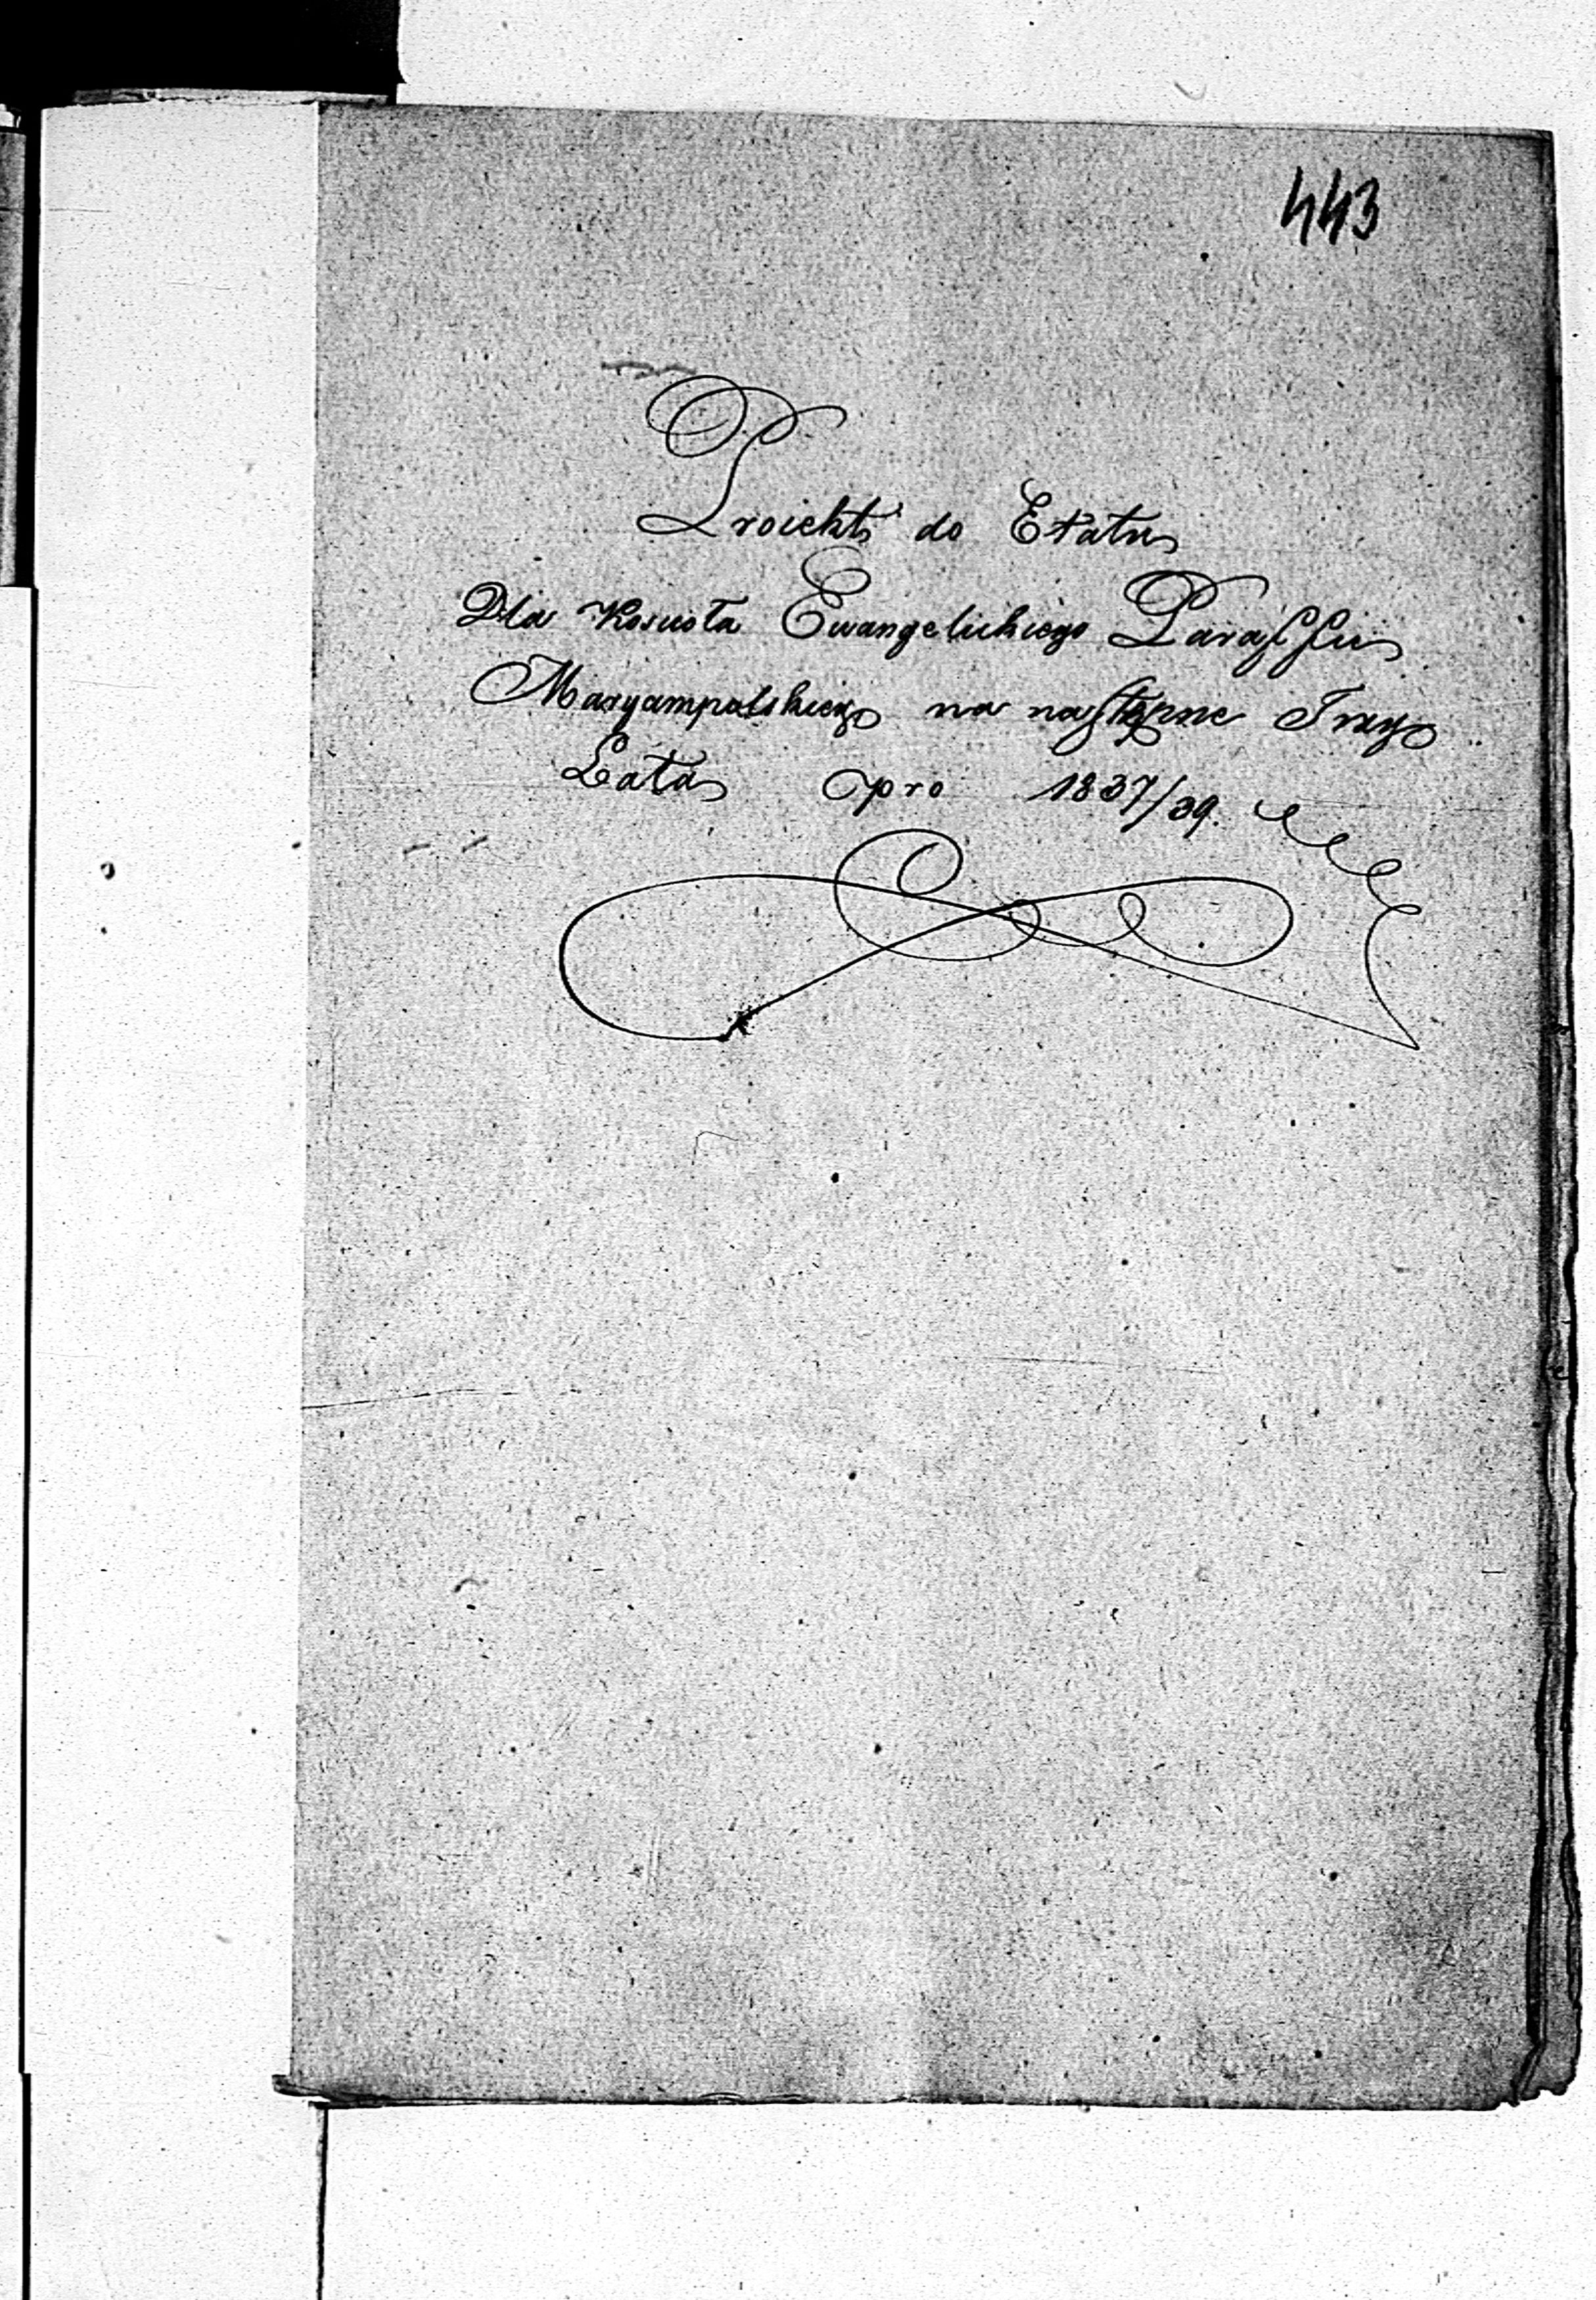 443
Proiekt do Etatu
Dla Koscioła Ewangelickiego Paraffii
Maryampolskiego na następne Trzy
Lata pro 1837/39.